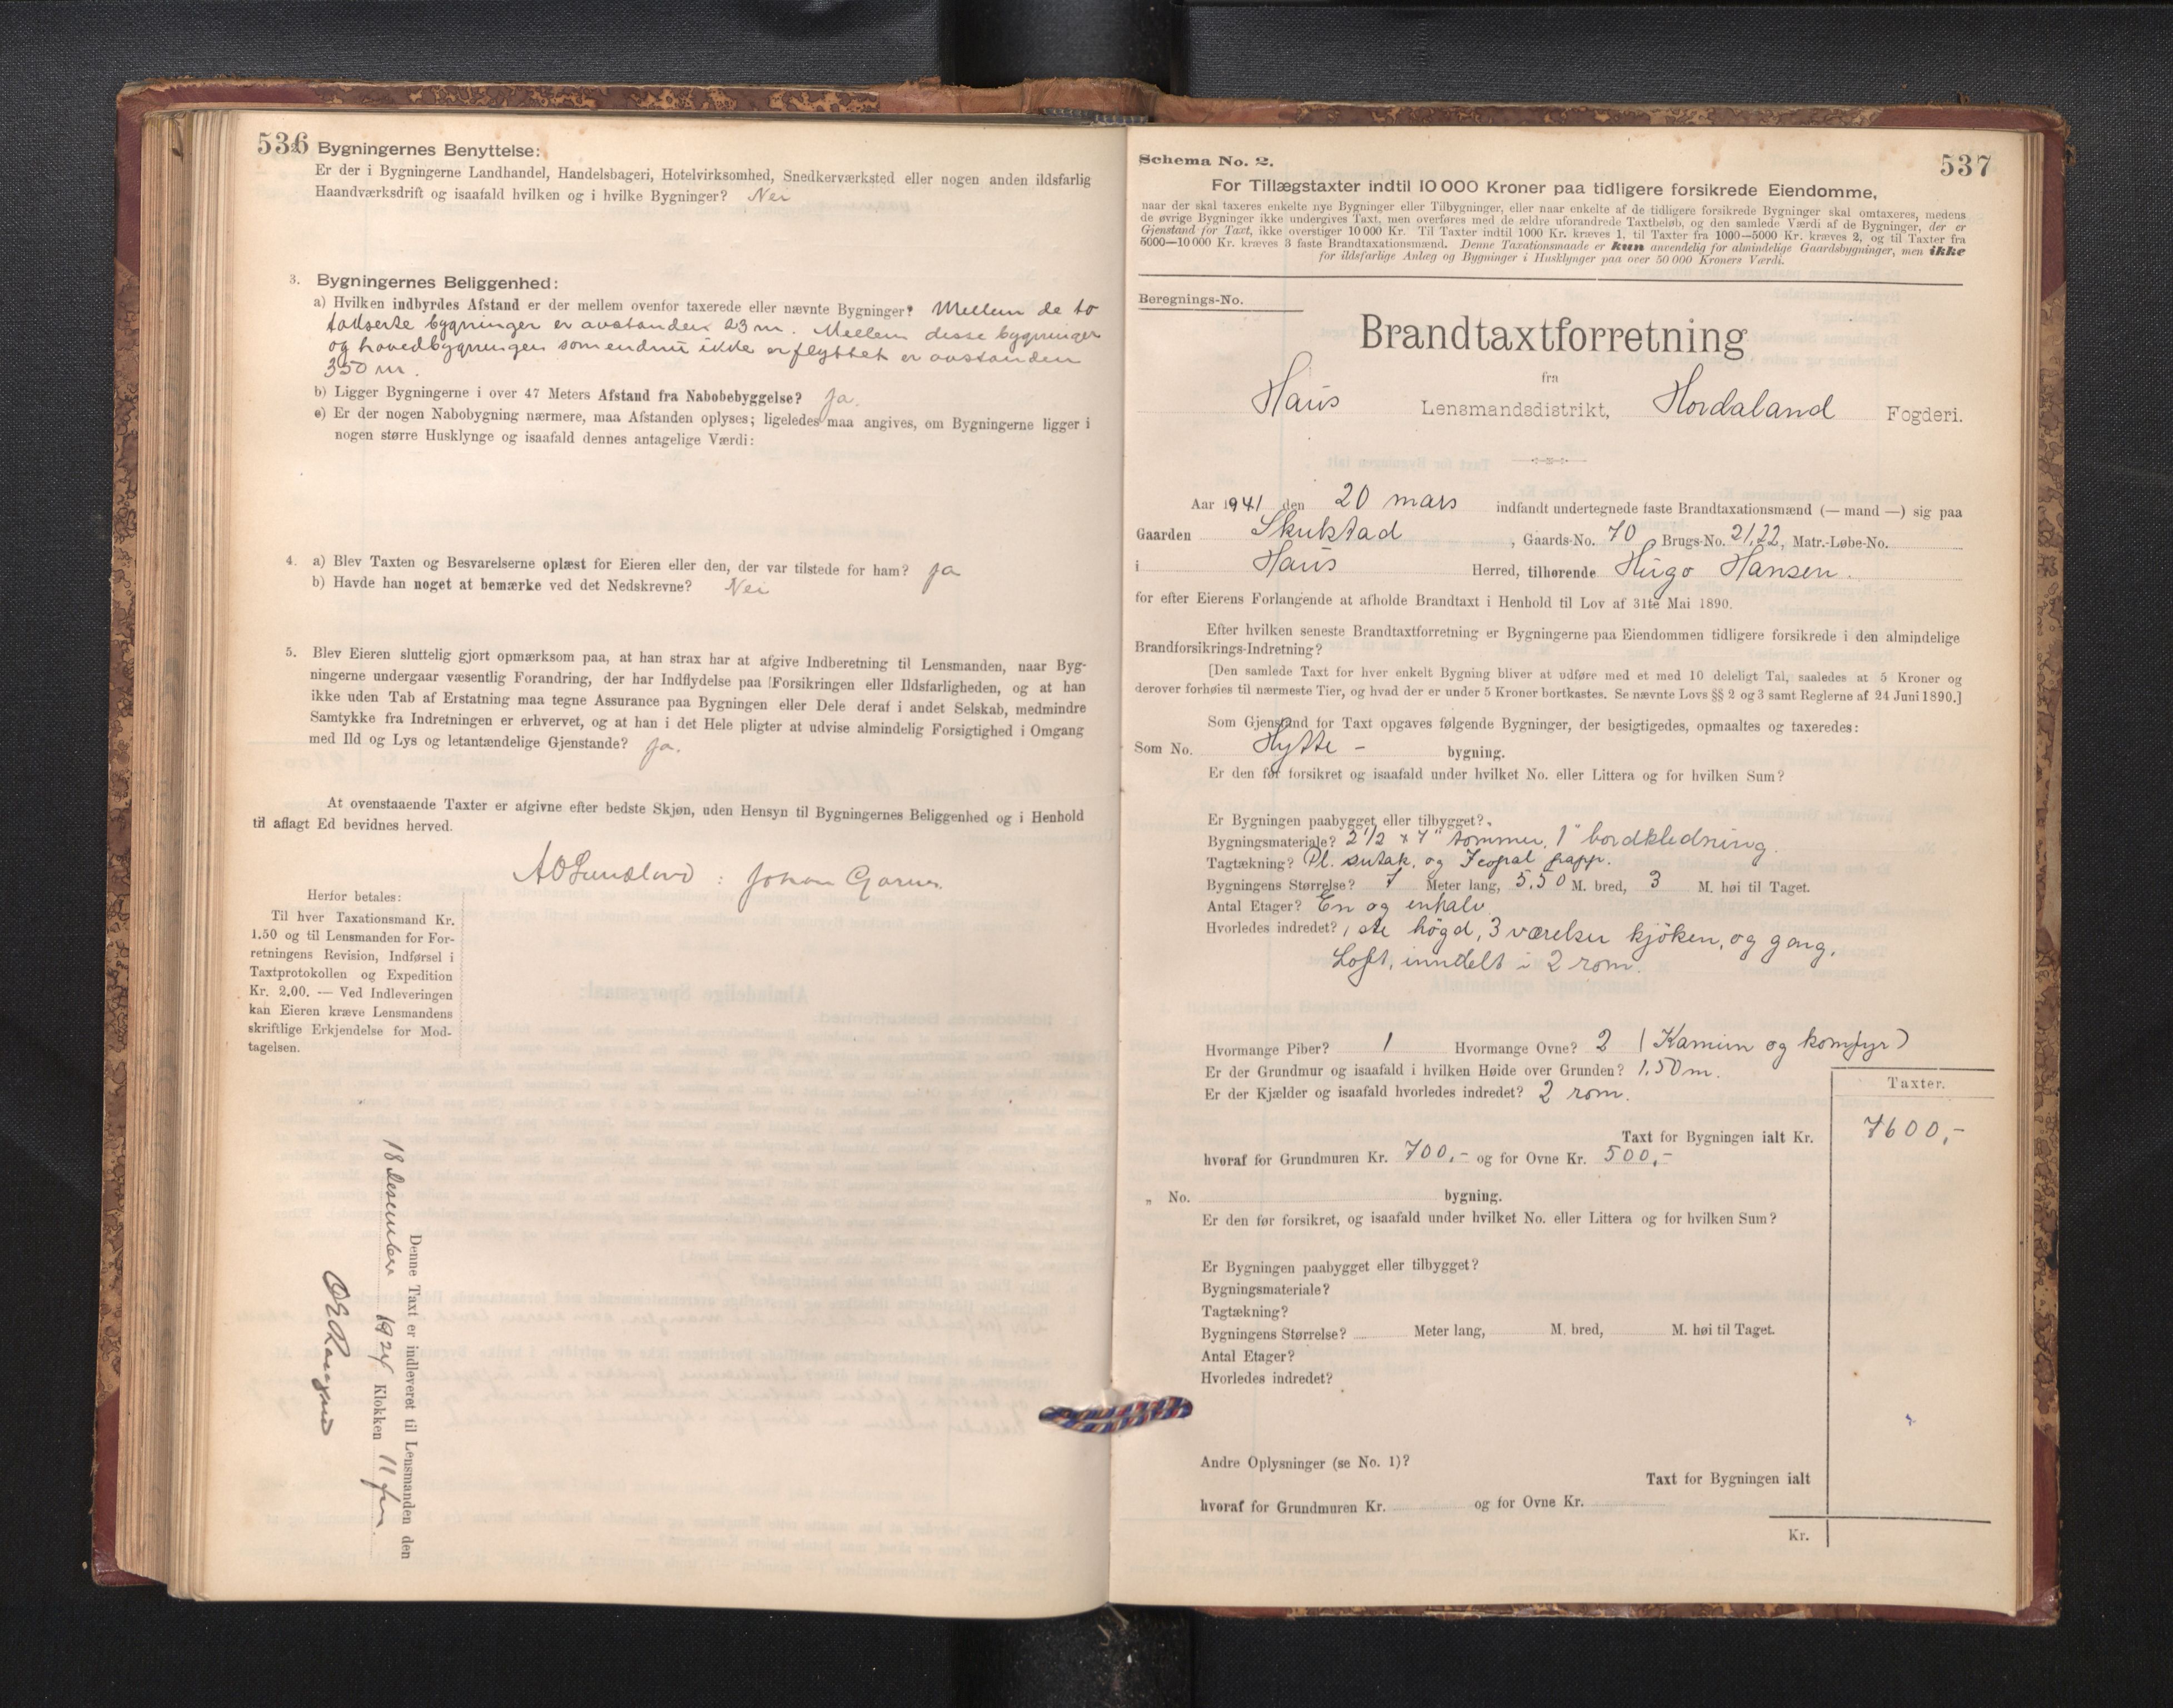 536
2. Bygningernes Benyttelse:
Er der i Bygningerne Landhandel, Handelsbageri, Hotelvirksomhed, Snedkerværksted eller nogen anden ildsfarlig
Haandværksdrift og isaafald hvilken og i hvilke Bygninger? Nei
3. Bygningernes Beliggenhed:
a) Hvilken indbyrdes Afstand er der mellem ovenfor taxerede eller nævnte Bygninger? Mellem de to
takserte bygninger er avstanden 23 m. Mellem disse bygninger
og hovedbygningen som endnu ikke er flyttet er avstanden
350 m.
b) Ligger Bygningerne i over 47 Meters Afstand fra Nabobebyggelse? Ja.
c) Er der nogen Nabobygning nærmere, maa Afstanden oplyses; ligeledes maa angives, om Bygningerne ligger i
nogen større Husklynge og isaafald dennes antagelige Værdi:
4. a) Blev Taxten og Besvarelserne oplæst for Eieren eller den, der var tilstede for ham? Ja
b) Havde han noget at bemærke ved det Nedskrevne? Nei
5. Blev Eieren sluttelig gjort opmærksom paa, at han strax har at afgive Indberetning til Lensmanden, naar Byg-
ningerne undergaar væsentlig Forandring, der har Indflydelse paa Forsikringen eller Ildsfarligheden, og at han
ikke uden Tab af Erstatning maa tegne Assurance paa Bygningen eller Dele deraf i andet Selskab, medmindre
Samtykke fra Indretningen er erhvervet, og at han i det Hele pligter at udvise almindelig Forsigtighed i Omgang
med Ild og Lys og letantændelige Gjenstande? Ja.
At ovenstaaende Taxter er afgivne efter bedste Skjøn, uden Hensyn til Bygningernes Beliggenhed og i Henhold
til aflagt Ed bevidnes herved.
Johan
Herfor betales:
Til hver Taxationsmand Kr.
1.50 og til Lensmanden for For-
retningens Revision, Indførsel i
Taxtprotokollen og Expedition
Kr. 2.00. — Ved Indleveringen
kan Eieren kræve Lensmandens
skriftlige Erkjendelse for Mod-
tagelsen.
Denne Taxt er indleveret til Lensmanden den
18 desember 1924 Klokken 11 fm
537
Schema No. 2.
For Tillægstaxter indtil 10 000 Kroner paa tidligere forsikrede Eiendomme,
naar der skal taxeres enkelte nye Bygninger eller Tilbygninger, eller naar enkelte af de tidligere forsikrede Bygninger skal omtaxeres, medens
de øvrige Bygninger ikke undergives Taxt, men overføres med de ældre uforandrede Taxtbeløb, og den samlede Værdi af de Bygninger, der er
Gjenstand for Taxt, ikke overstiger 10 000 Kr. Til Taxter indtil 1000 Kr. kræves 1, til Taxter fra 1000—5000 Kr. kræves 2, og til Taxter fra
5000—10 000 Kr. kræves 3 faste Brandtaxationsmænd. Denne Taxationsmaade er kun anvendelig for almindelige Gaardsbygninger, men ikke
for ildsfarlige Anlæg og Bygninger i Husklynger paa over 50 000 Kroners Værdi.
Beregnings-No.
Brandtaxtforretning
fra
Haus Lensmandsdistrikt, Hordaland Fogderi.
Aar 1941 den 20 mars indfandt undertegnede faste Brandtaxationsmænd (— mand —) sig paa
Gaarden Skukstad, Gaards-No. 70 Brugs-No. 21,22, Matr.-Løbe-No.
i Haus Herred, tilhørende Hugo Hansen.
for efter Eierens Forlangende at afholde Brandtaxt i Henhold til Lov af 31te Mai 1890.
Efter hvilken seneste Brandtaxtforretning er Bygningerne paa Eiendommen tidligere forsikrede i den almindelige
Brandforsikrings-Indretning?
[Den samlede Taxt for hver enkelt Bygning bliver at udføre med et med 10 deleligt Tal, saaledes at 5 Kroner og
derover forhøies til nærmeste Tier, og hvad der er under 5 Kroner bortkastes. Se nævnte Lovs §§ 2 og 3 samt Reglerne af 24 Juni 1890.]
Som Gjenstand for Taxt opgaves følgende Bygninger, der besigtigedes, opmaaltes og taxeredes:
Som No. Hytte – bygning.
Er den før forsikret og isaafald under hvilket No. eller Littera og for hvilken Sum?
Er Bygningen paabygget eller tilbygget?
Bygningsmateriale? 2 1/2 x 7" tømmer, 1" bordkledning.
Tagtækning? Pl. sutak, og Icopal papp.
Bygningens Størrelse? 7 Meter lang, 5.50 M. bred, 3 M. høi til Taget.
Antal Etager? En og enhalv
Hvorledes indredet? 1 ste högd, 3 værelser kjöken, og gang,
Loft, inndelt i 2 rom.
Hvormange Piber? 1 Hvormange Ovne? 2 (Kamin og komfyr)
Er der Grundmur og isaafald i hvilken Høide over Grunden? 1.50 m.
Er der Kjælder og isaafald hvorledes indredet? 2 rom.
Taxter.
Taxt for Bygningen ialt Kr. 7600,-
hvoraf for Grundmuren Kr. 700,- og for Ovne Kr. 500,-
„ No. bygning.
Er den før forsikret, og isaafald under hvilket No. eller Littera og for hvilken Sum?
Er Bygningen paabygget eller tilbygget?
Bygningsmateriale?
Tagtækning?
Bygningens Størrelse? Meter lang, M. bred, M. høi til Taget.
Antal Etager?
Hvorledes indredet?
Andre Oplysninger (se No. 1)?
Taxt for Bygningen ialt
hvoraf for Grundmuren Kr. og for Ovne Kr.
Kr.